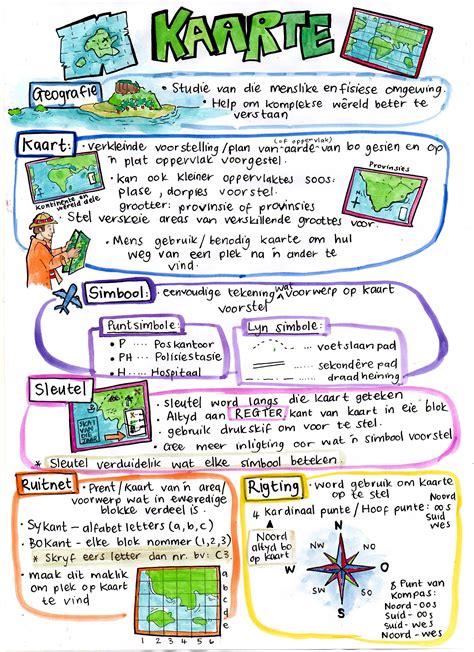 KAARTE
Geografie
• Studie van die menslike en fisiese omgewing.
• Help om komplekse wêreld beter te
verstaan
Kaart:
(of oppervlak)
• verkleinde voorstelling/plan van aarde van bo gesien en op
'n plat oppervlak voorgestel.
• kan ook kleiner oppervlaktes soos:
plase, dorpies voorstel.
grootter: provinsie of provinsies
Provinsies
Kontinente en
wêreld dele
• Stel verskeie areas van verskillende groottes voor.
• Mens gebruik/benodig kaarte om hul
weg van een plek na 'n ander te
vind.
Simbool:
• eenvoudige tekening wat voorwerp op kaart
voorstel
Puntsimbole:
• P .... Poskantoor
• PH .... Polisiestasie
• H .... Hospitaal
Lyn simbole:
voetslaanpad
sekondêre pad
draadheining
Sleutel
• sleutel word langs die kaart geteken
• Altyd aan REGTER kant van kaart in eie blok.
• gebruik drukskif om voor te stel.
• Gee meer inligting oor wat 'n simbool voorstel
* Sleutel verduidelik wat elke simbool beteken.
Ruitnet
• Prent/kaart van 'n area/
voorwerp wat in eweredige
blokke verdeel is.
• Sykant – alfabet letters (a, b, c)
• Bokant – elke blok nommer (1, 2, 3)
* Skryf eers letter dan nr. bv: C3.
• maak dit maklik
om plek op kaart
te vind
a
b
c
d
e
1 2 3 4 5 6
Rigting
• word gebruik om kaarte
op te stel
4 Kardinaal punte / Hoof punte:
Noord
oos
Suid
wes
Noord
altyd bo
op kaart
8 Punt van
Kompas:
Noord-oos
Suid-oos
Suid-wes
Noord-wes